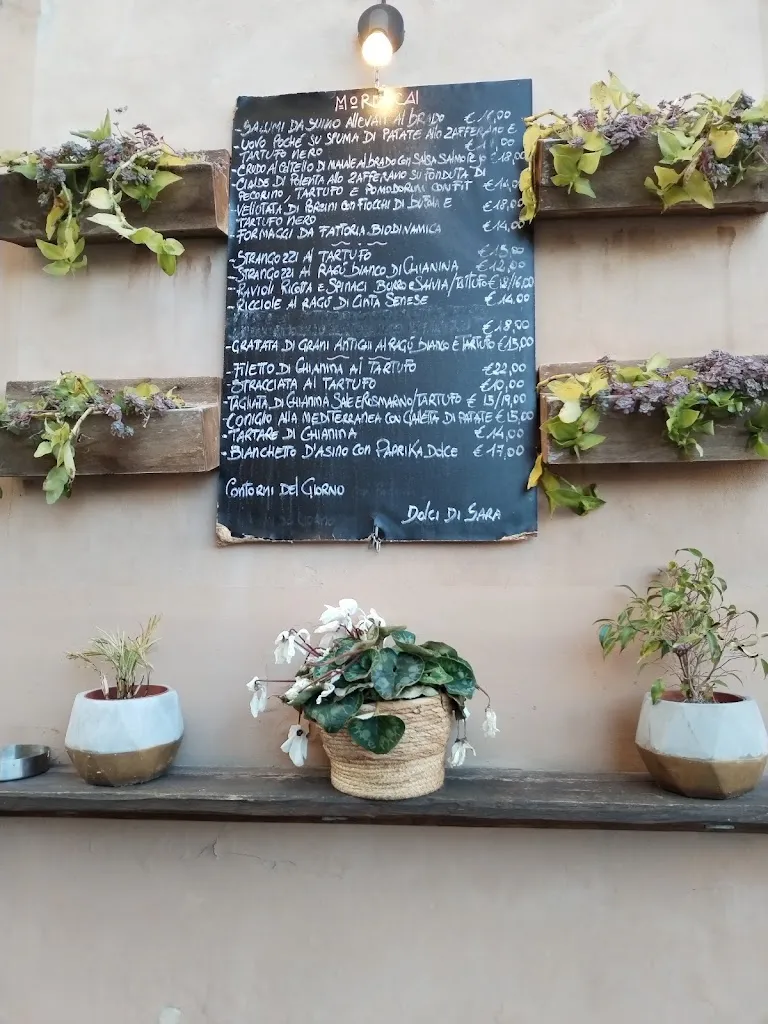 - SALUMI DA SUINO ALLEVATI AL BRADO
- UOVO POCHÉ SU SPUMA DI PATATE ALLO ZAFFERANO E
TARTUFO NERO
- CRUDO AL COLTELLO DI MAIALE AL BRADO CON SALSA € 18,00
- CIALDE DI POLENTA ALLO ZAFFERANO SU FONDUTA DI
PECORINO, TARTUFO E POMODORINI CONFIT
- VELLUTATA DI PORCINI CON FIOCCHI DI E € 18,00
TARTUFO NERO
- FORMAGGI DA FATTORIA BIODINAMICA € 14,00
- STRANGOZZI AL TARTUFO € 15,00
- STRANGOZZI AL RAGÚ BIANCO DI CHIANINA € 12,00
- RAVIOLI RICOTTA E SPINACI BURRO E SALVIA/TARTUFO
- RICCIOLE AL RAGÚ DI CINTA SENESE € 14,00
€ 18,00
- GRATTATA DI GRANI ANTICHI AL RAGÚ BIANCO E TARTUFO € 15,00
- FILETTO DI CHIANINA AL TARTUFO € 22,00
- STRACCIATA AL TARTUFO € 10,00
- TAGLIATA DI CHIANINA SALE E ROSMARINO/TARTUFO € 15/19,00
- CONIGLIO ALLA MEDITERRANEA CON GALETTA DI PATATE € 15,00
- TARTARE DI CHIANINA € 14,00
- BIANCHETTO D'ASINO CON PAPRIKA DOLCE € 17,00
CONTORNI DEL GIORNO
DOLCI DI SARA